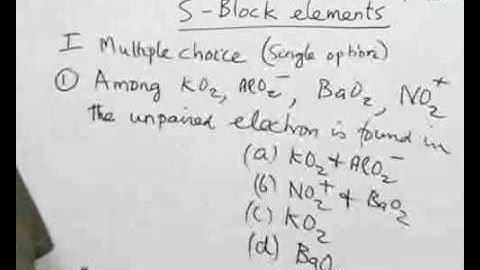 S-Block elements
I Multiple choice (Single option)
① Among KO₂, AlO₂⁻, BaO₂, NO₂⁺
the unpaired electron is found in
(a) KO₂ + AlO₂⁻
(b) NO₂⁺ + BaO₂
(c) KO₂
(d) BaO